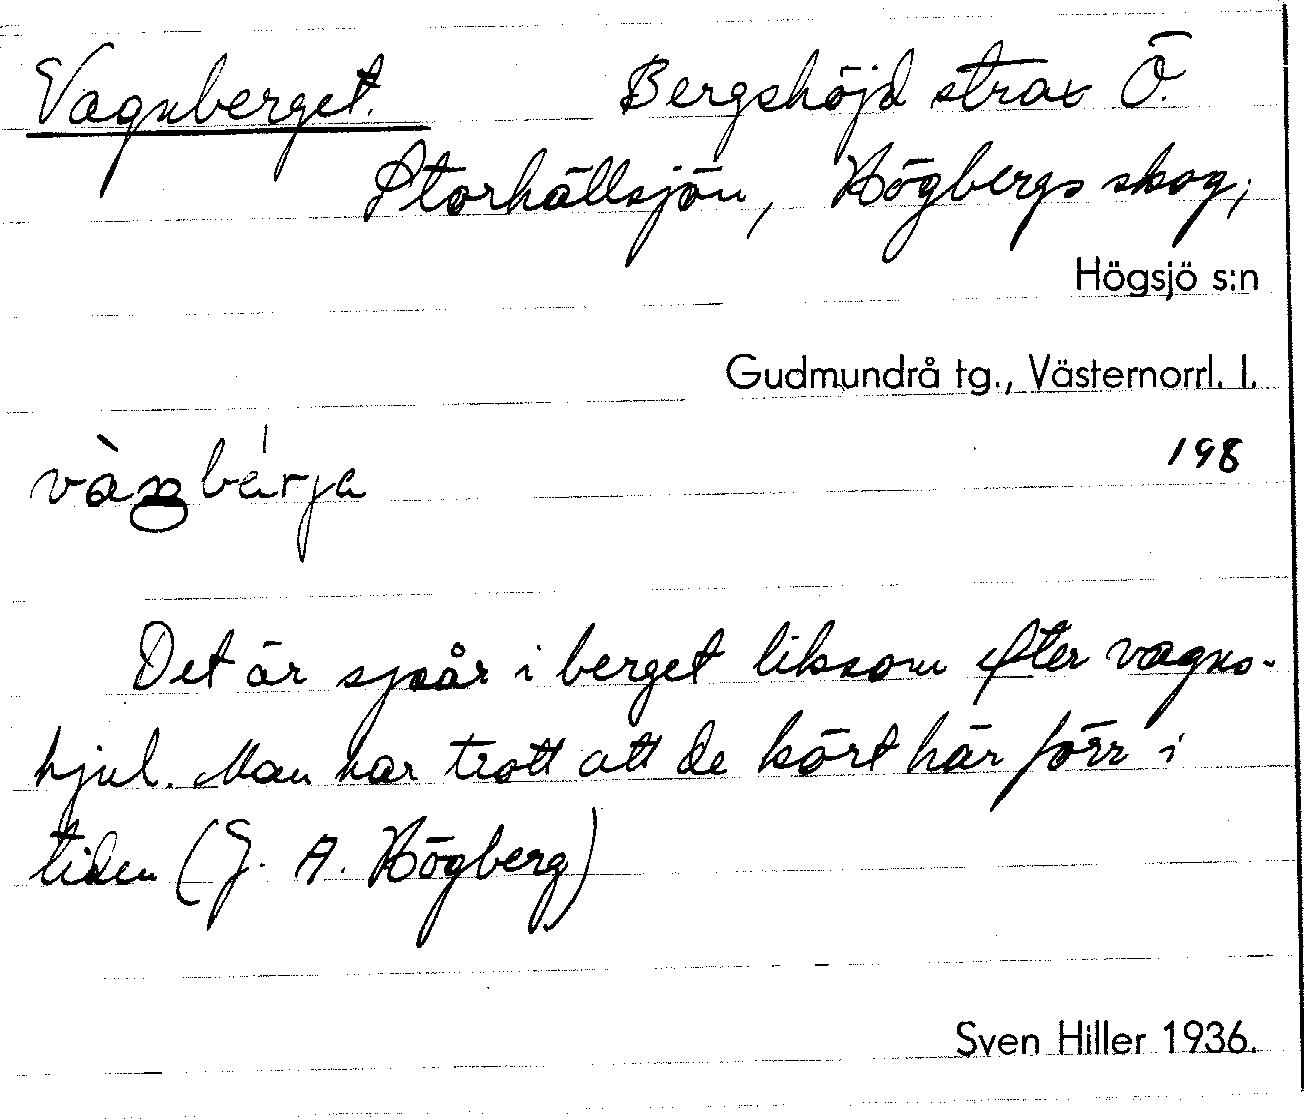 Vagnberget. Bergshöjd strax Ö.
Storhällsjön, Högbergs skog,
Högsjö s:n
Gudmundrå tg., Västernorrl. l.
198
Det är spår i berget liksom efter vagns-
hjul. Man har trott att de kört här förr i
tiden (J. A. Högberg)
Sven Hiller 1936.